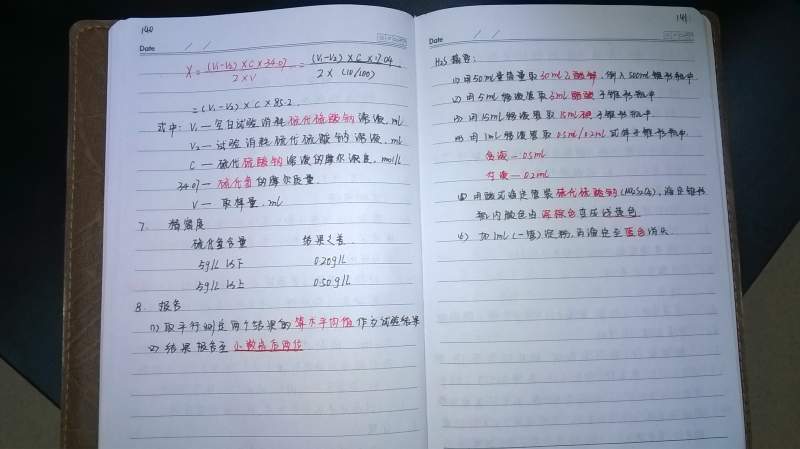 140
Date / /
X = (V₁-V₂) × C × 34.07 / 2 × V = (V₁-V₂) × C × 17.04 / 2 × (10/100)
= (V₁-V₂) × C × 85.2
式中: V₁ — 空白试验消耗硫代硫酸钠溶液, ml
V₂ — 试验消耗硫代硫酸钠溶液, ml
C — 硫代硫酸钠溶液的摩尔浓度, mol/L
34.07 — 硫化氢的摩尔质量
V — 取样量, ml
7. 精密度
硫化氢含量 结果之差
5g/L以下 0.20g/L
5g/L以上 0.50g/L
8. 报告
(1) 取平行测定两个结果的算术平均值作为试验结果
(2) 结果报告至小数点后两位
141
Date / /
H₂S 操作:
(1) 用50ml量筒量取50ml 倒入500ml锥形瓶中
(2) 用5ml移液管取 于锥形瓶中
(3) 用15ml移液管取15ml碘于锥形瓶中
(4) 用1ml移液管取0.5ml/0.2ml试样于锥形瓶中
贫液 — 0.5ml
富液 — 0.2ml
用碱式滴定管装硫代硫酸钠 滴定锥形
瓶内颜色由 变成浅黄色
(6) 加1ml(一管)淀粉, 再滴定至蓝色消失